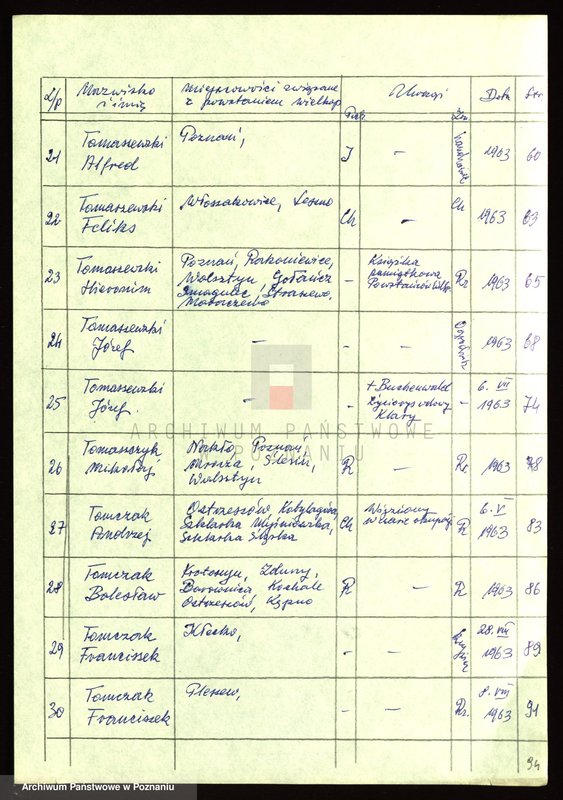 L/p Nazwisko i imię Miejscowości związane z powstaniem wielkop Uwagi Data Str
21 Tomaszewski Alfred Poznań, J - 1963 60
22 Tomaszewski Feliks Włoszakowice, Leszno Ch - Ch 1963 63
23 Tomaszewski Hieronim Poznań, Rakoniewice, Wolsztyn, Gołańcz - Książka pamiątkowa Powstańców Wlkp. Rz 1963 65
24 Tomaszewski Józef - - - 1963 68
25 Tomaszewski Józef. - - + Buchenwald życiorys wdowy Klary - 6. VII 1963 74
26 Tomaszyk Mikołaj Nakło, Poznań, Mrocza, Ślesin, Wolsztyn R - Rz 1963 78
27 Tomczak Andrzej Ostrzeszów, Kobylagóra, Szklarka Myślniewska, Szklarka Śląska Ch Więziony w czasie okupacji R 6. V 1963 83
28 Tomczak Bolesław Krotoszyn, Zduny, Borownica Kochale Ostrzeszów, Kępno R - R 1963 86
29 Tomczak Franciszek Kłecko, - - 28. VIII 1963 89
30 Tomczak Franciszek Pleszew, - - Rz. 8. VIII 1963 91
94
ARCHIWUM PAŃSTWOWE
W POZNANIU
Archiwum Państwowe w Poznaniu